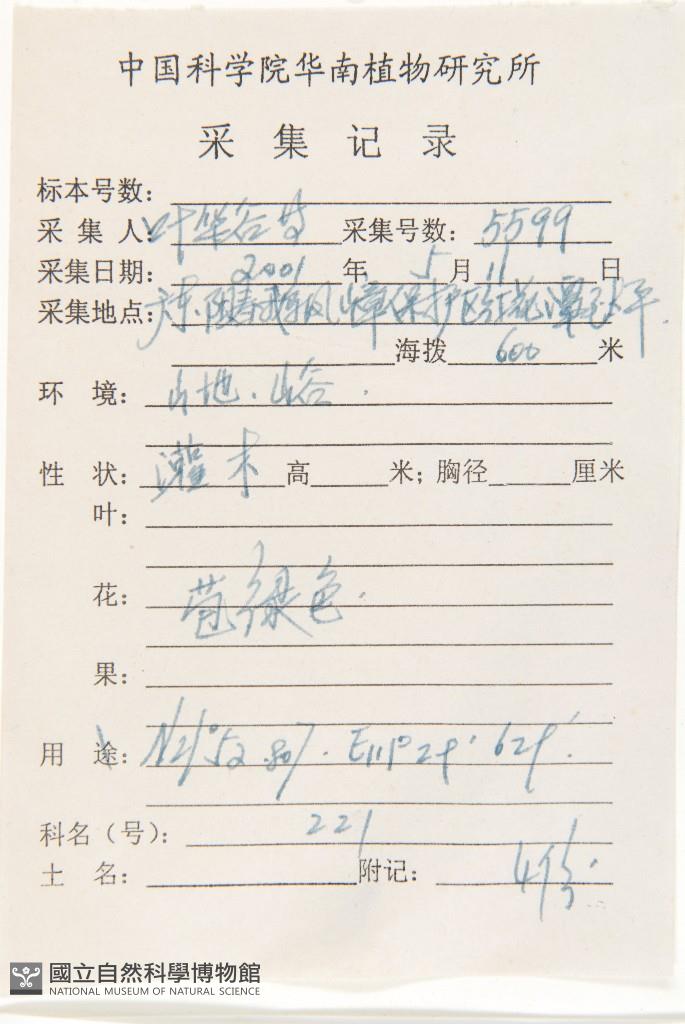 中国科学院华南植物研究所
采集记录
标本号数：
采集人：叶华谷等 采集号数：5599
采集日期：2001年5月11日
采集地点：广东.阳春鹅凰嶂保护区红花潭
海拨600米
环境：山地.山谷.
性状：灌木 高 米；胸径 厘米
叶：
花：苞绿色.
果：
用途：N21°52.807. E111°24' 624'.
科名（号）：221
土名： 附记：4份.
國立自然科學博物館
NATIONAL MUSEUM OF NATURAL SCIENCE